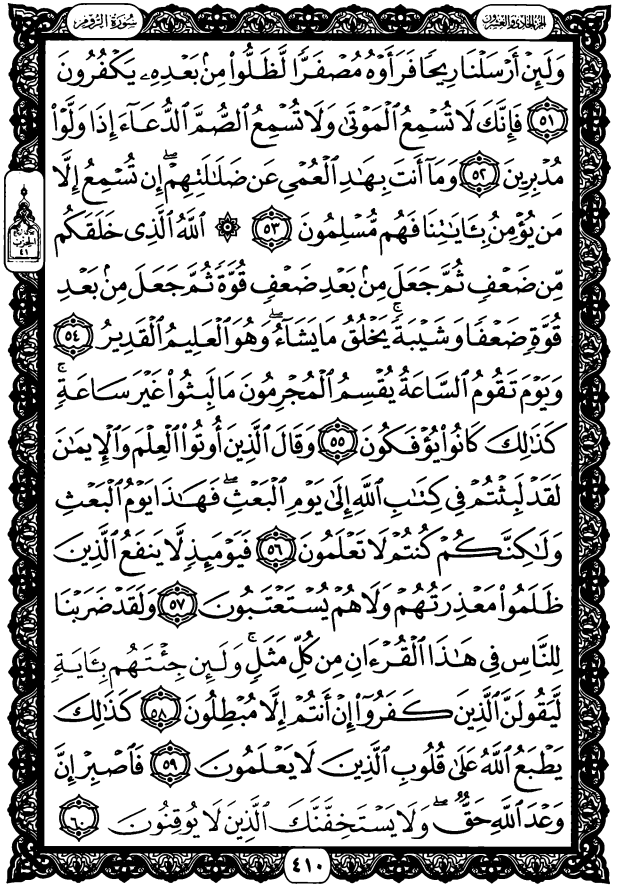 الجزء الحادي والعشرون
سُورَةُ الرُّومِ
وَلَئِنْ أَرْسَلْنَا رِيحًا فَرَأَوْهُ مُصْفَرًّا لَّظَلُّوا۟ مِنۢ بَعْدِهِۦ يَكْفُرُونَ
٥١ فَإِنَّكَ لَا تُسْمِعُ ٱلْمَوْتَىٰ وَلَا تُسْمِعُ ٱلصُّمَّ ٱلدُّعَآءَ إِذَا وَلَّوْا۟
مُدْبِرِينَ ٥٢ وَمَآ أَنتَ بِهَٰدِ ٱلْعُمْىِ عَن ضَلَٰلَتِهِمْ ۖ إِن تُسْمِعُ إِلَّا
مَن يُؤْمِنُ بِـَٔايَٰتِنَا فَهُم مُّسْلِمُونَ ٥٣ ۞ ٱللَّهُ ٱلَّذِى خَلَقَكُم
مِّن ضَعْفٍ ثُمَّ جَعَلَ مِنۢ بَعْدِ ضَعْفٍ قُوَّةً ثُمَّ جَعَلَ مِنۢ بَعْدِ
قُوَّةٍ ضَعْفًا وَشَيْبَةً ۚ يَخْلُقُ مَا يَشَآءُ ۖ وَهُوَ ٱلْعَلِيمُ ٱلْقَدِيرُ ٥٤
وَيَوْمَ تَقُومُ ٱلسَّاعَةُ يُقْسِمُ ٱلْمُجْرِمُونَ مَا لَبِثُوا۟ غَيْرَ سَاعَةٍ ۚ
كَذَٰلِكَ كَانُوا۟ يُؤْفَكُونَ ٥٥ وَقَالَ ٱلَّذِينَ أُوتُوا۟ ٱلْعِلْمَ وَٱلْإِيمَٰنَ
لَقَدْ لَبِثْتُمْ فِى كِتَٰبِ ٱللَّهِ إِلَىٰ يَوْمِ ٱلْبَعْثِ ۖ فَهَٰذَا يَوْمُ ٱلْبَعْثِ
وَلَٰكِنَّكُمْ كُنتُمْ لَا تَعْلَمُونَ ٥٦ فَيَوْمَئِذٍ لَّا يَنفَعُ ٱلَّذِينَ
ظَلَمُوا۟ مَعْذِرَتُهُمْ وَلَا هُمْ يُسْتَعْتَبُونَ ٥٧ وَلَقَدْ ضَرَبْنَا
لِلنَّاسِ فِى هَٰذَا ٱلْقُرْءَانِ مِن كُلِّ مَثَلٍ ۚ وَلَئِن جِئْتَهُم بِـَٔايَةٍ
لَّيَقُولَنَّ ٱلَّذِينَ كَفَرُوٓا۟ إِنْ أَنتُمْ إِلَّا مُبْطِلُونَ ٥٨ كَذَٰلِكَ
يَطْبَعُ ٱللَّهُ عَلَىٰ قُلُوبِ ٱلَّذِينَ لَا يَعْلَمُونَ ٥٩ فَٱصْبِرْ إِنَّ
وَعْدَ ٱللَّهِ حَقٌّ ۖ وَلَا يَسْتَخِفَّنَّكَ ٱلَّذِينَ لَا يُوقِنُونَ ٦٠
الحزب
٤١
٤١٠